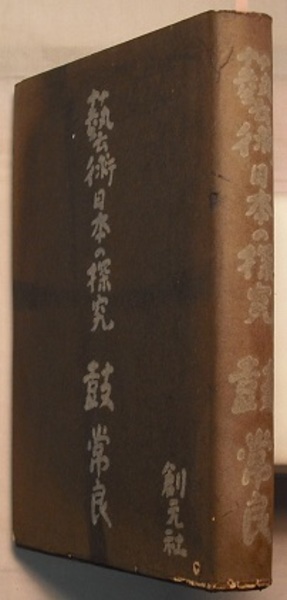 藝術日本の探究 鼓常良
創元社
藝術日本の探究 鼓常良